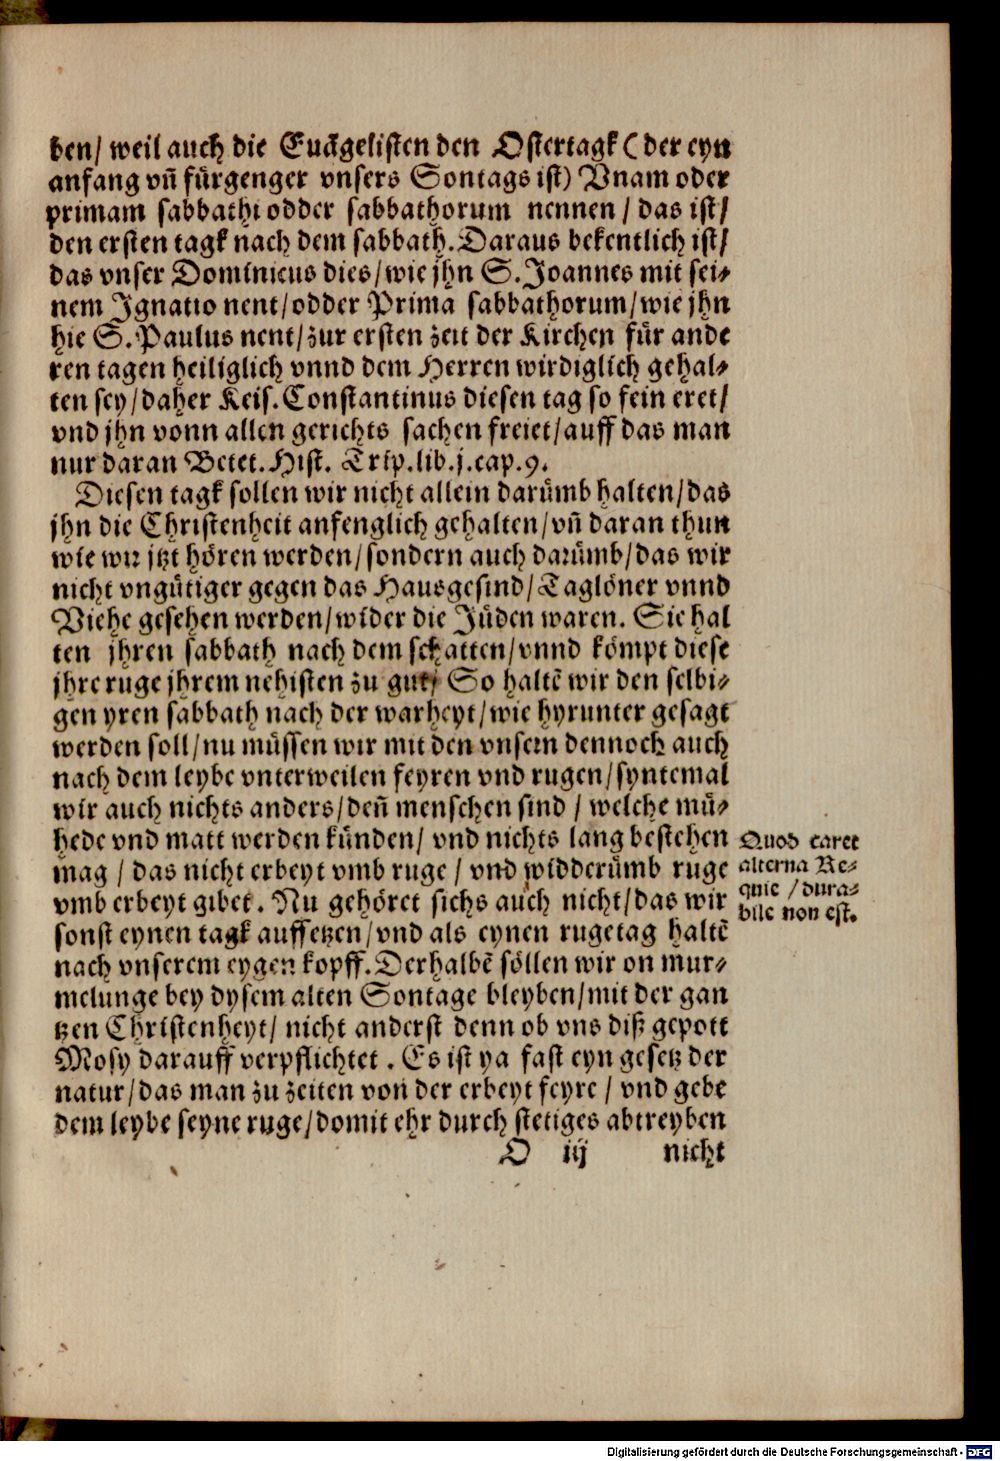 ben/ weil auch die Euāgelisten den Ostertagk (der eyn
anfang vn̄ fürgenger vnsers Sontags ist) Vnam oder
primam sabbathi odder sabbathorum nennen / das ist/
den ersten tagk nach dem sabbath. Daraus bekentlich ist/
das vnser Dominicus dies/ wie jhn S. Joannes mit sei⸗
nem Ignatio nent/ odder Prima sabbathorum/ wie jhn
hie S. Paulus nent/ zur ersten zeit der Kirchen für ande
ren tagen heiliglich vnnd dem Herren wirdiglich gehal⸗
ten sey/ daher Keis. Constantinus diesen tag so fein eret/
vnd jhn vonn allen gerichts sachen freiet/ auff das man
nur daran Betet. Hist. Trip. lib. j. cap. 9.
Diesen tagk sollen wir nicht allein darümb halten/ das
jhn die Christenheit anfenglich gehalten/ vn̄ daran thun
wie wir jtzt hören werden/ sondern auch darümb/ das wir
nicht vngütiger gegen das Hausgesind/ Taglöner vnnd
Viehe gesehen werden/ wider die Jüden waren. Sie hal
ten jhren sabbath nach dem schatten/ vnnd kömpt diese
jhre ruge jhrem nehisten zu gut/ So haltē wir den selbi⸗
gen yren sabbath nach der warheyt/ wie hyrunter gesagt
werden soll/ nu müssen wir mit den vnsern dennoch auch
nach dem leybe vnterweilen feyren vnd rugen/ syntemal
wir auch nichts anders/ den̄ menschen sind / welche mü⸗
hede vnd matt werden künden/ vnd nichts lang bestehen
mag / das nicht erbeyt vmb ruge / vnd widderümb ruge
vmb erbeyt gibet. Nu gehöret sichs auch nicht/ das wir
sonst eynen tagk auffsetzen/ vnd als eynen rugetag haltē
nach vnserem eygen kopff. Derhalbē söllen wir on mur⸗
melunge bey dysem alten Sontage bleyben/ mit der gan
tzen Christenheyt/ nicht anderst denn ob vns diß gepott
Mosy darauff verpflichtet. Es ist ya fast eyn gesetz der
natur/ das man zu zeiten von der erbeyt feyre / vnd gebe
dem leybe seyne ruge/ domit ehr durch stetiges abtreyben
O iij nicht
Quod caret
alterna Re⸗
quie / dura⸗
bile non est.
Digitalisierung gefördert durch die Deutsche Forschungsgemeinschaft - DFG